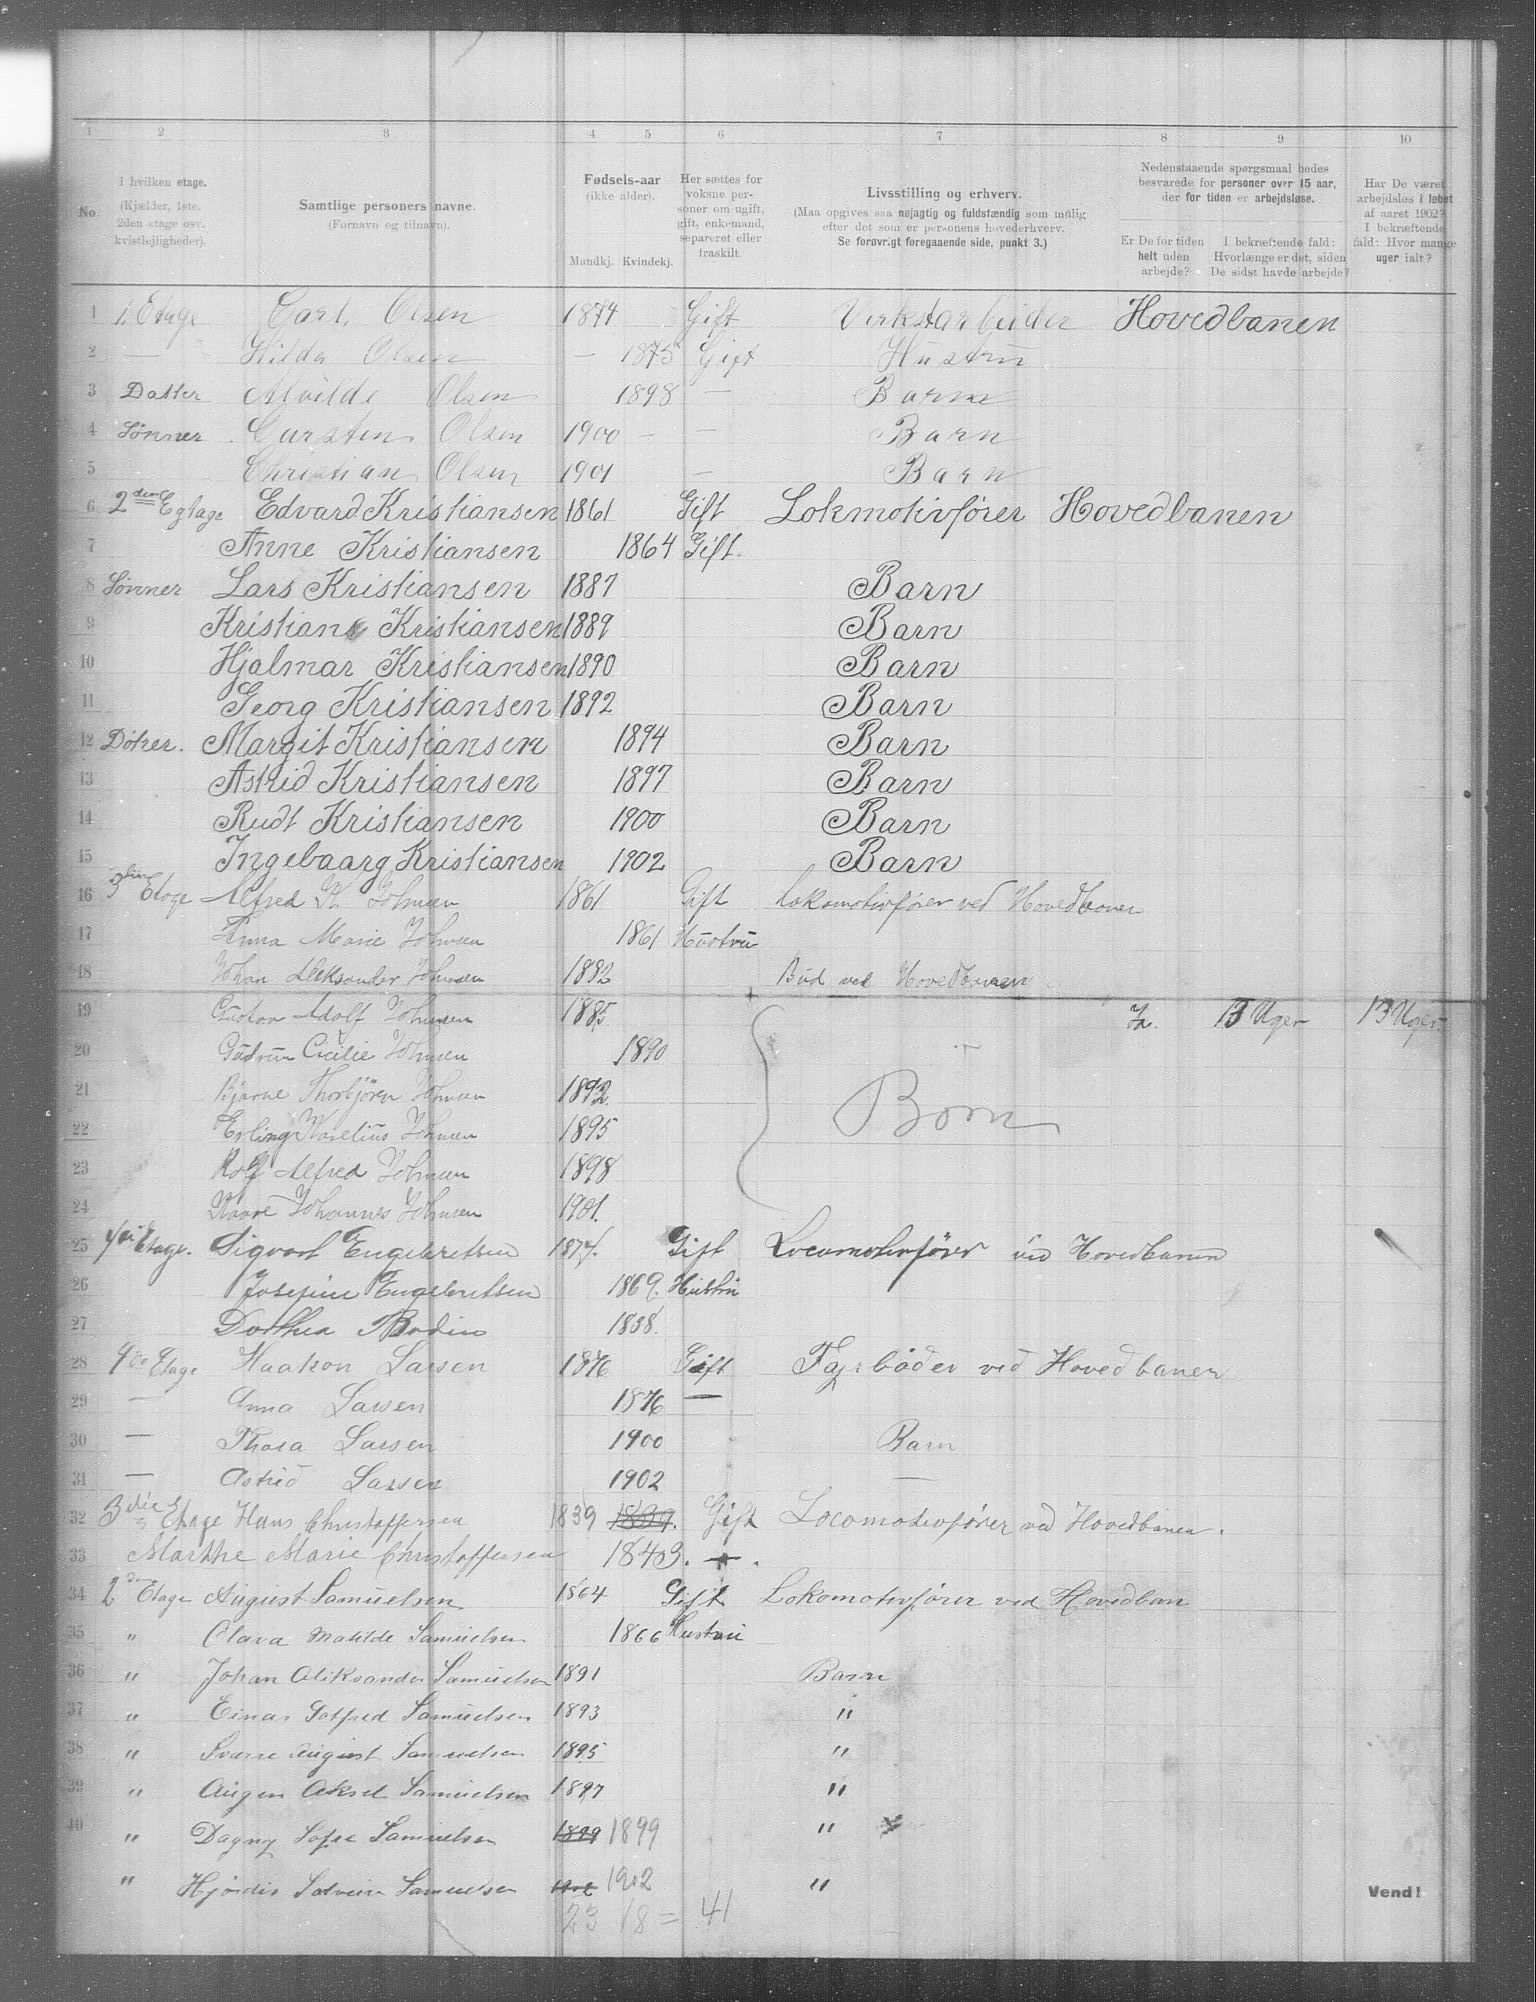 1 2 3 4 5 6 7 8 9 10
No.
I hvilken etage. (Kjælder, 1ste, 2den etage osv. kvistlejligheder).
Samtlige personers navne. (Fornavn og tilnavn).
Fødsels-aar (ikke alder).
Mandkj. Kvindekj.
Her sættes for voksne personer om ugift, gift, enkemand, separeret eller fraskilt.
Livsstilling og erhverv. (Maa opgives saa nøjagtig og fuldstændig som mulig efter det som er personens hovederhverv. Se forøvrigt foregaaende side, punkt 3.)
Nedenstaaende spørgsmaal bedes besvarede for personer over 15 aar, der for tiden er arbejdsløse.
Er De for tiden helt uden arbejde?
I bekræftende fald: Hvorlænge er det, siden De sidst havde arbejde?
Har De været arbejdsløs i løbet af aaret 1902? I bekræftende fald: Hvor mange uger ialt?
1 1. Etage Carl Olsen 1874 Gift Verkstarbeider Hovedbanen
2 — Hilda Olsen — 1875 Gift Hustru
3 Datter Alvilde Olsen 1898 — Barn
4 Sønner Carsten Olsen 1900 — — Barn
5 Christian Olsen 1901 — Barn
6 2den Egtage Edvard Kristiansen 1861 Gift Lokmotivfører Hovedbanen
7 Anne Kristiansen 1864 Gift.
8 Sønner Lars Kristiansen 1887 Barn
9 Kristian Kristiansen 1889 Barn
10 Hjalmar Kristiansen 1890 Barn
11 Georg Kristiansen 1892 Barn
12 Døtrer. Margit Kristiansen 1894 Barn
13 Astrid Kristiansen 1897 Barn
14 Rudt Kristiansen 1900 Barn
15 Ingebaarg Kristiansen 1902 Barn
16 3die Etage Alfred K. Johnsen 1861 Gift Lokomotivfører ved Hovedbanen
17 Anna Marie Johnsen 1861 Hustru
18 Johan Aleksander Johnsen 1882 Bud ved Hovedbanen
19 Gustav Adolf Johnsen 1885 Ja. 13 Uger 13 Uger
20 Gudrun Cicilie Johnsen 1890
21 Bjarne Thorbjörn Johnsen 1892 Børn
22 Erling Kornelius Johnsen 1895
23 Rolf Alfred Johnsen 1898
24 Kaare Johannes Johnsen 1901.
25 Etage. Sigvart Engebretsen 1874. Gift Locomotivfører ved Hovedbanen
26 Josefine Engebretsen 1869. Hustru
27 Dorthea Bodin 1838.
28 4de Etage Haakon Larsen 1876 Gift Fyrbøder ved Hovedbanen
29 — Anna Larsen 1876 —
30 — Thora Larsen 1900 Barn
31 — Astrid Larsen 1902 —
32 3die Etage Hans Christoffersen 1839 1839. Gift Locomotivfører ved Hovedbanen.
33 Marthe Marie Christoffersen 1843. — .
34 2den Etage August Samuelsen 1864 Gift Lokomotivfører ved Hovedban
35 " Clara Matilde Samuelsen 1866 Hustru
36 " Johan Aliksander Samuelsen 1891 Barn
37 " Einar Gotfred Samuelsen 1893 "
38 " Sverre August Samuelsen 1895 "
39 " Augen Aksel Samuelsen 1897 "
40 " Dagny Sofie Samuelsen 1899 1899 "
" Hjørdis Solveig Samuelsen 1902 1902 "
23 18 = 41
Vend!